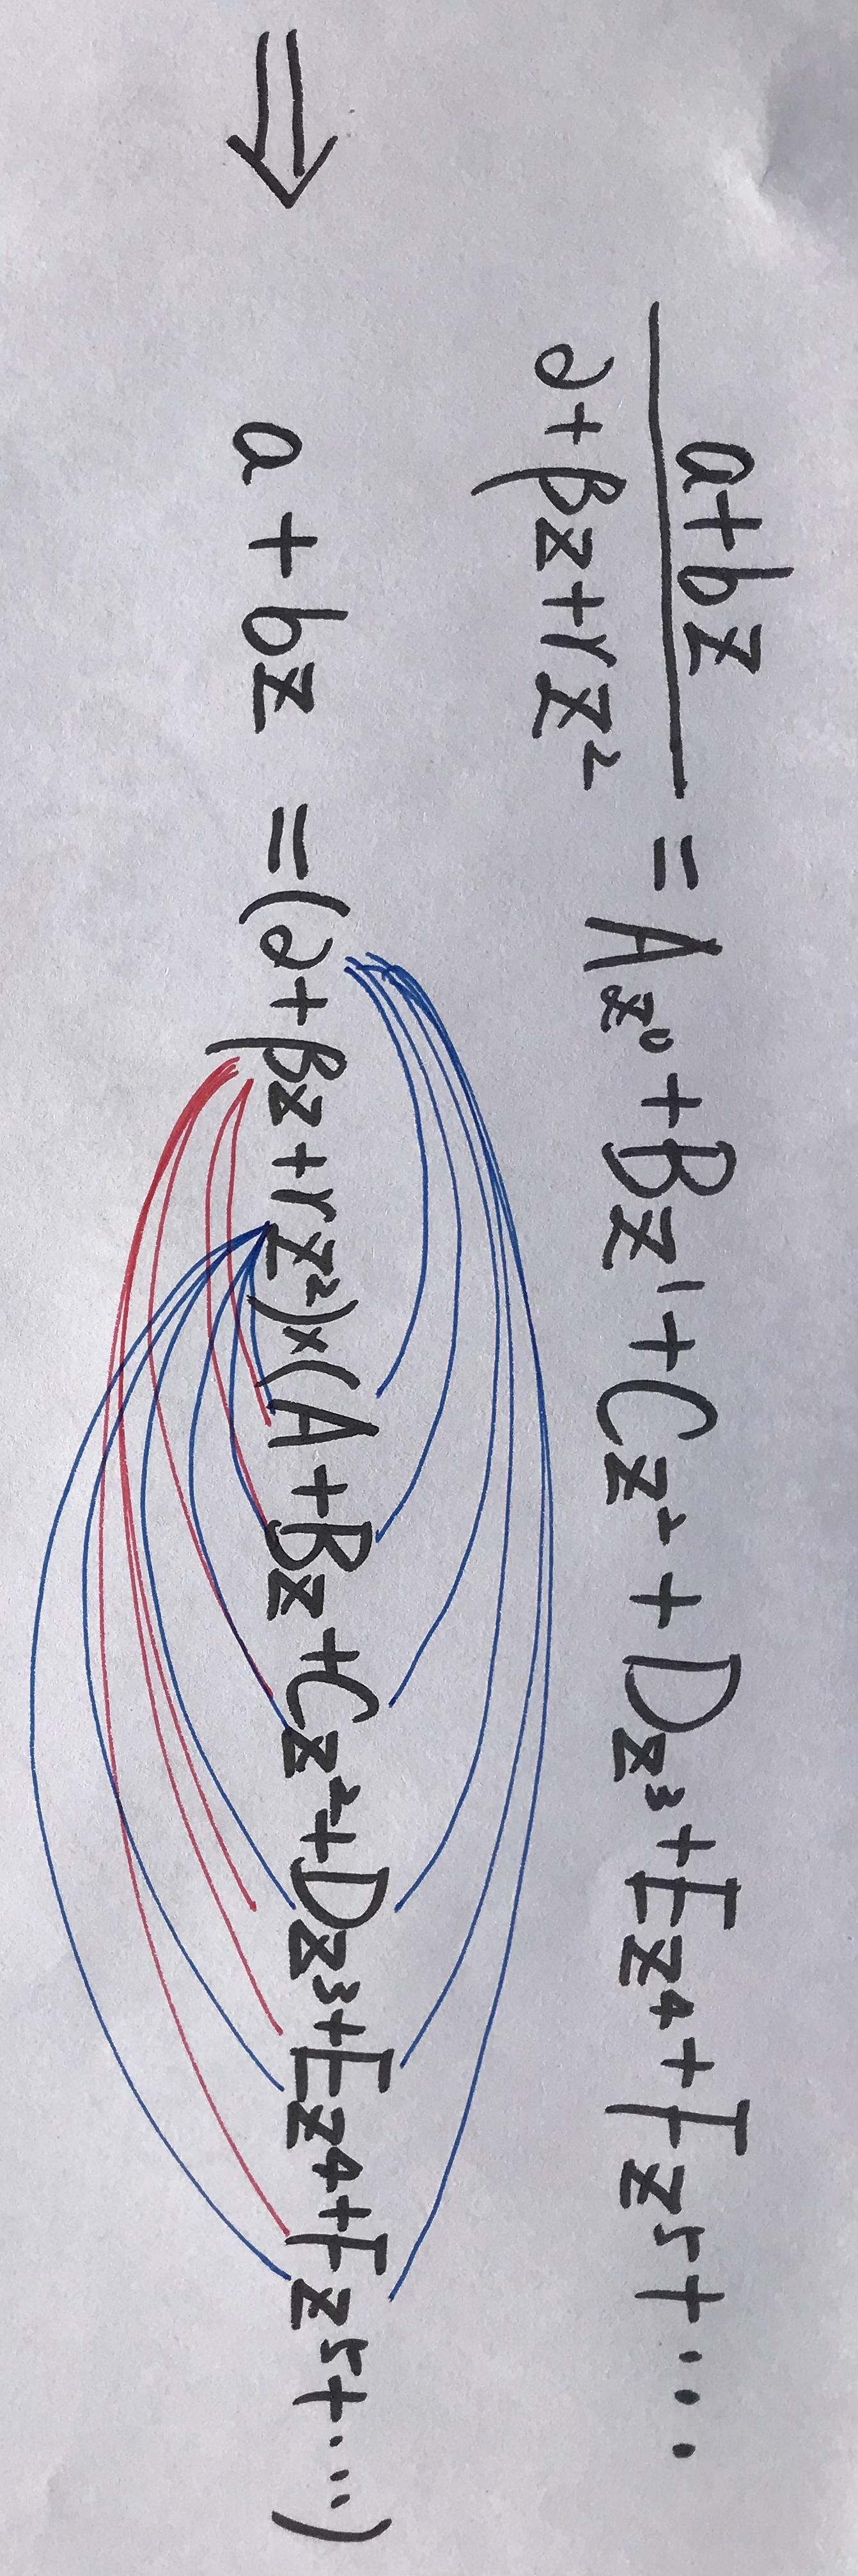 (a+bz)/(∂+βz+rz²) = Az⁰+Bz¹+Cz²+Dz³+Ez⁴+Fz⁵+⋯
⇒ a+bz =(∂+βz+rz²)×(A+Bz+Cz²+Dz³+Ez⁴+Fz⁵+⋯)